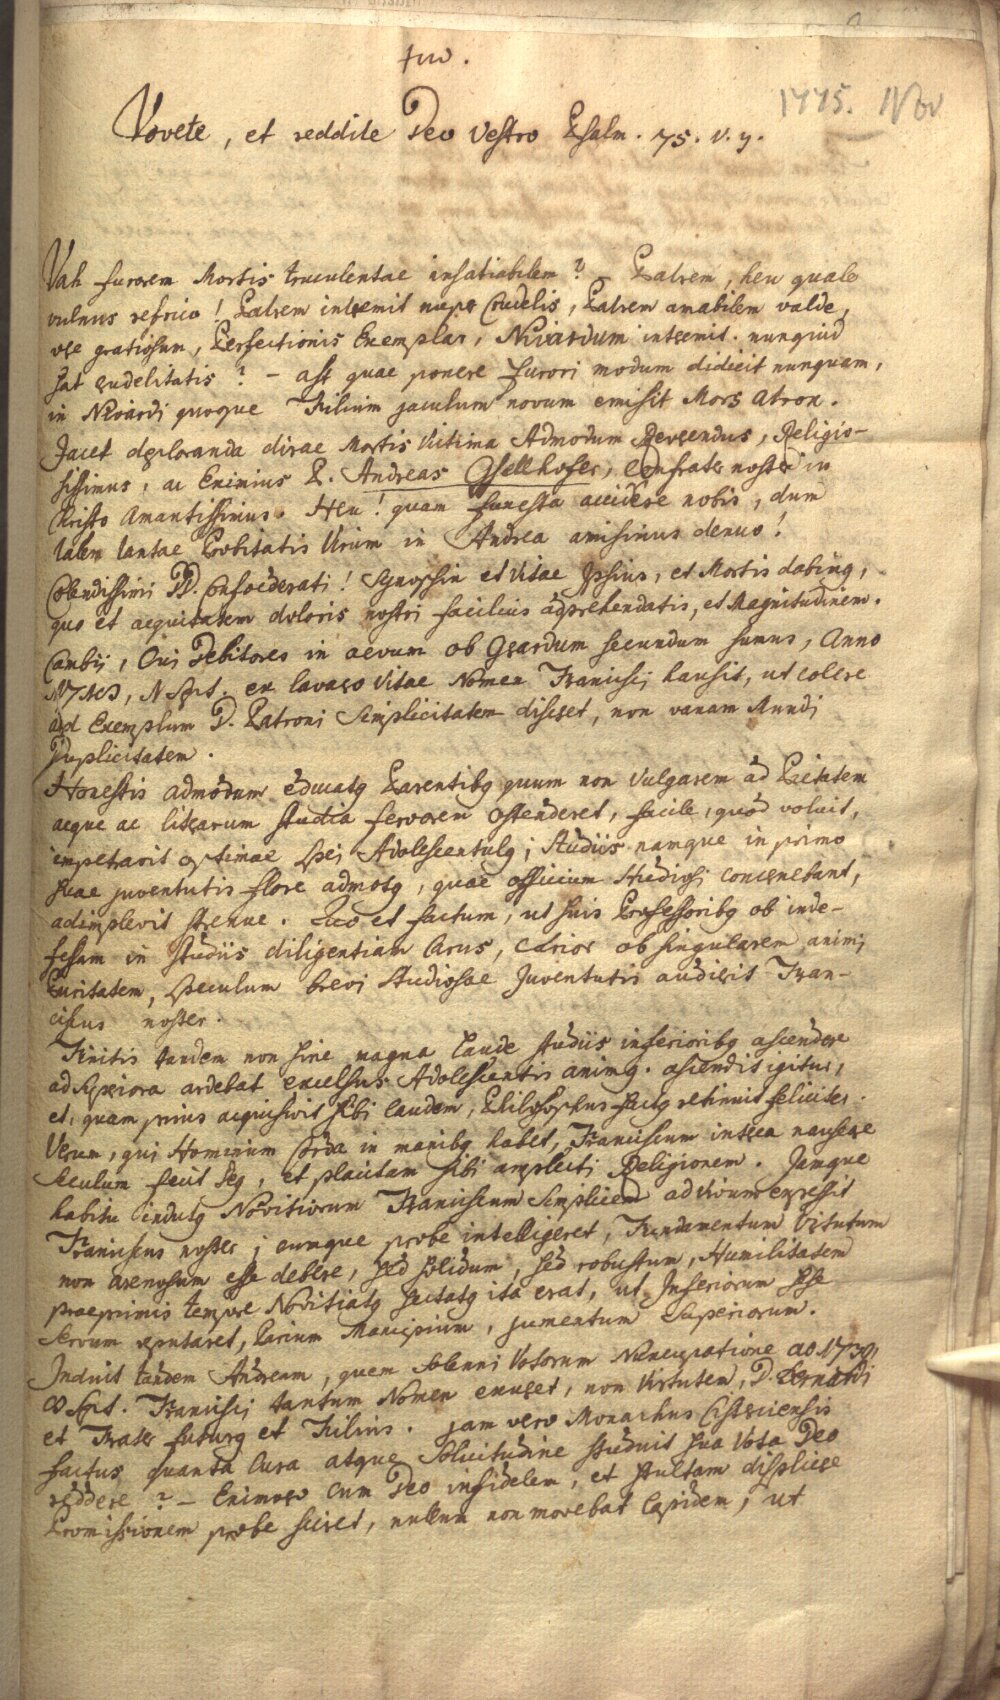 1775. Nov
Vovete, et reddite Deo vestro Psalm. 75. v. y.
Vah furorem Mortis truculentae insatiabilem? – Patrem, heu quale
vulnus refrico! Patrem intremit nuper Crudelis, Patrem amabilem valde,
vre gratiosum, Perfectionis Exemplar, Nivardum intremit. nunquid
sat crudelitatis? – ast quae ponere furori modum didicit nunquam,
in Nivardi quoque Filium jaculum novum emisit Mors atrox.
Jacet deploranda dirae Mortis Victima Admodum Reverendus, Religio-
sissimus, ac Eximius P. Andreas Gsellhofer, Confrater noster in
Christo Amantissimus. Heu! quam funesta accidere nobis, dum
talem tantae Probitatis Virum in Andrea amisimus denuo!
Colendissimi DD. Confoederati! Synopsin et Vitae Ipsius, et Mortis dabimq,
quo et aequitatem doloris nostri facilius adprehendatis, et Magnitudinem.
Cambii, Cui Debitores in aevum ob Gerardum secundum sumus, Anno
Sept. ex lavacro Vitae Nomen Francisci hausit, ut colere
ad Exemplum D. Patroni Simplicitatem disceret, non vanam Mundi
Duplicitatem.
Honestis admodum educatq Parentibq quum non vulgarem ad Pietatem
aeque ac literarum studia fervorem ostenderet, facile, quod voluit,
impetravit optimae spei Adolescentulq; Studiis namque in primo
suae juventutis flore admotq, quae officium Studiosi concernebant,
adimplevit strenue. Quo et factum, ut suis Professoribq ob inde-
fessam in studiis diligentiam Carus, Carior ob singularem animi
Puritatem, Speculum brevi Studiosae Juventutis audierit Fran-
ciscus noster.
Finitis tandem non sine magna Laude studiis inferioribq ascendere
ad superiora ardebat excelsus Adolescentis animq. ascendit igitur,
et, quam prius acquisivit sibi laudem, Philosophus factq retinuit feliciter.
Verum, qui Hominum Corda in manibq habet, Franciscum interea nauseare
Seculum fecit Deq, et placitam sibi amplecti Religionem. Jamque
habitu indutq Novitiorum Franciscum Simplicem ad vivum expressit
Franciscus noster; cumque probe intelligeret, Fundamentum Virtutum
non arenosum esse debere, sed solidum, sed robustum, Humilitatem
praeprimis tempore Novitiatq sectatq ita erat, ut Inferiorum sese
servum reputaret, Parium Mancipium, jumentum Superiorum.
Induit tandem Andream, quem solenni Votorum Nuncupatione ao 1739
Sept. Francisci tantum Nomen exuret, non Virtutem, D. Bernardi
et Frater futurq et Filius. jam vero Monachus Cisterciensis
factus quanta Cura atque Solicitudine studuit sua Vota Deo
reddere? – Enimvero cum Deo infidelem, et stultam displicere
Promissionem probe sciret, nullum non movebat lapidem, ut